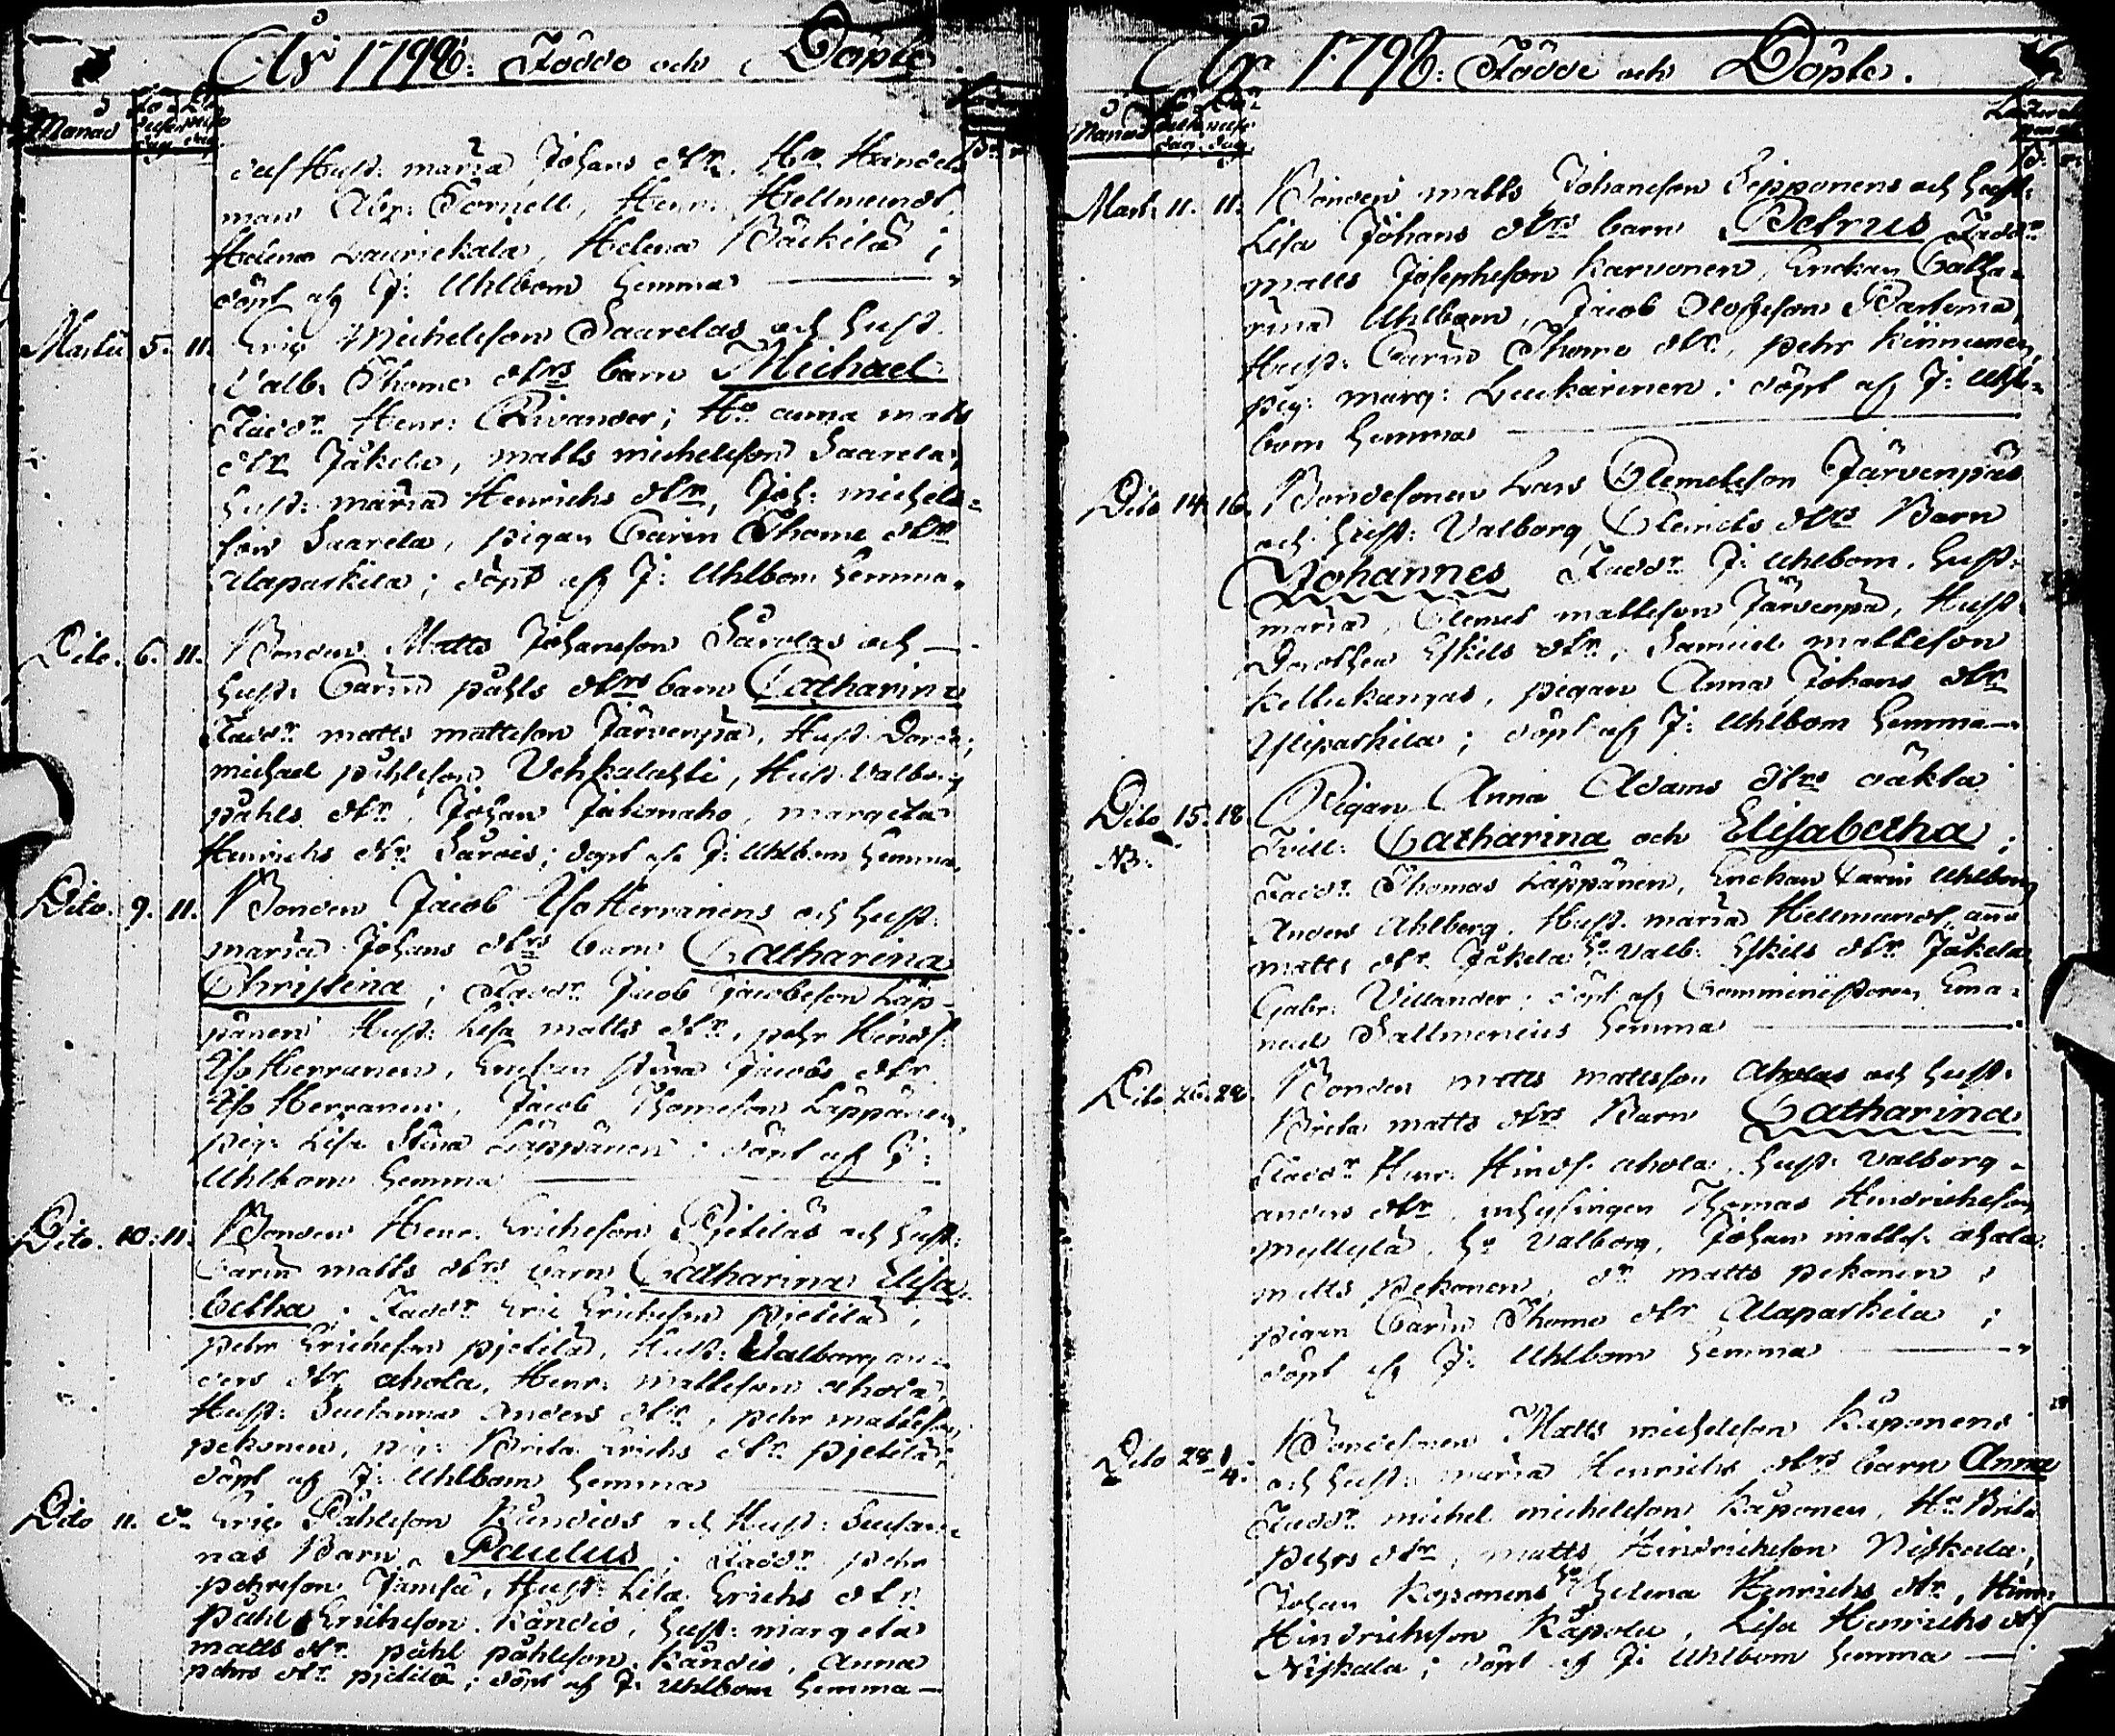 År 1798: Födde och Döpte
Månad
dess Hust: maria Johans dtr. Hr Handels
man Abr: Tornell, Henr: Hellmundt,
Helena Lauriekala, Helena Päckilä
döpt af J: Uhlbom hemma
Martii 5. 11. Eric Michelsson Saarelas och hust.
Valb: Thome dtrs barn Michael
Fadd.r Henr: ; Ho anna matts
dtr Jäkelä, matts michelsson Saarela,
hust: maria Henrichs dtr, Joh: michels=
son Saarela, pigan Carin Thome dtr
Alaparkila; döpt af J: Uhlbom hemma
Dito. 6. 11. Bonden Matts Johansson Särolas och
hust: Carin påhls dtrs barn Catharina
Fadd.r matts mattsson Järvenpä, Hust. Dorde;
michael påhlsson Vehkalahti, Hust. Valborg
påhls dtr. Johan Jakonaho, margeta
Henrichs dtr. ; döpt af J: Uhlbom hemma
Dito. 9. 11. Bonden Jacob Iso Herranens och hust.
maria Johans dtrs barn Catharina
Christina; Fadd.r Jacob Jacobsson Läp=
pänen Hust: Lisa matts dtr, pehr Hends:
Iso Herranen, Enkan Stina Jacobs dtr.
Iso Herranen, Jacob Thomeson Läppänen,
pig: Lisa Stina Läppänen: döpt af J:
Uhlbom hemma
Dito. 10. 11. Bonden Henr: Erichsson Pjetiläs och hust:
Carin matts dtrs barn Catharina Elisa
betha; Fadd.r Eric Erichsson pjetilä,
pehr Erichsson pjetilä, Hust: Valborg an=
ders dtr ahola, Henr: mattsson ahola,
Hust: Susanna anders dtr, pehr mattsson
pekonen, pig: Brita Erichs dtr. pjetilä
döpt af J: Uhlbom hemma
Dito 11. do Eric Påhlsson Kändiös och Hust: Susan=
nas Barn Paulus; Fadd.r pehr
pehrsson Jämsä, Hust: Lisa Erichs dtr.
Påhl Erichsson Kändiö, hust: margeta
matts dtr. påhl påhlsson Kändiö, Anna
pehrs dtr. pjetilä; döpt af J: Uhlbom hemma
År 1798: Födde och Döpte.
Månad
Mart: 11. 11. Bonden matts Johansson Seipponens och hust:
Lisa Johans dtrs barn Petrus Fadd.r
matts Josephsson Karvonen, Enckan Catha=
rina Uhlbom, Jacob Olofsson
Hust: Carin Thome dtr, pehr Kinnunen,
pig: marg: Leuckarinen: döpt af J: Uhl=
bom hemma
Dito 14. 16. Bondesonen Lars Clemetsson Järvenpäs
och hust: Valborg dtrs Barn
Johannes Fadd.r J: Uhlbom. hust:
maria, Clemet mattsson Järvenpä, Hust.
Dorothea Eskels dtr, Samuel mattsson
Kellukangas, pigan Anna Johans dtr
Yliparkila; döpt af J: Uhlbom hemma
Dito 15. 18. Pigan Anna Adams dtrs oäkta
NB. Tvill: Catharina och Elisabetha;
Fadd.r Thomas Läppänen, Enckan Carin Uhlbom
Anders Ahlberg. Hust. maria Hellmundt, anna
matts dtr. Jäkelä, ho Valb: Eskils dtr. Jäkelä
Gabr: Villander; döpt af Comministern Ema=
nuel Salmenius hemma
Dito 26. 28. Bonden matts mattsson Aholas och hust.
Brita matts dtrs Barn Catharina
Fadd.r Henr: Hinds: ahola, hust: Valborg
anders dtr, inhysingen Thomas Hindrichsson
Myllylä, ho Valborg, Johan matts: ahola
matts pekonen, dr matts pekonen;
pigan Carin Thome dtr Alaparkila;
döpt af J: Uhlbom hemma
Dito 28. 1/4. Bondesonen Matts michelsson Käponens
och hust: maria Henrichs dtrs barn Anna
Fadd.r michel michelsson Käponen, Ho Brita
pehrs dtr, matts Hindrichsson Niskala,
Johan Koponens ho helena Henrichs dtr, Henr:
Hindrichsson Käpolä, Lisa Henrichs dtr
Niskala; döpt af J: Uhlbom hemma